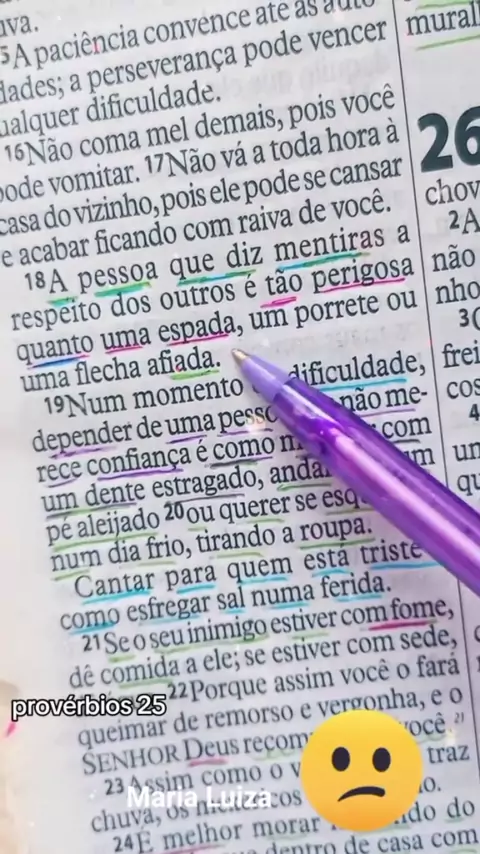 va.
15A paciência convence até as auto
dades; a perseverança pode vencer
ualquer dificuldade.
16Não coma mel demais, pois você
pode vomitar. 17Não vá a toda hora à
casa do vizinho, pois ele pode se cansar
e acabar ficando com raiva de você.
18A pessoa que diz mentiras a
respeito dos outros é tão perigosa
quanto uma espada, um porrete ou
uma flecha afiada.
19Num momento dificuldade,
depender de uma pesso não me-
rece confiança é como m com
um dente estragado, anda um
pé aleijado 20ou querer se esq
num dia frio, tirando a roupa.
Cantar para quem está triste
como esfregar sal numa ferida.
21Se o seu inimigo estiver com fome,
dê comida a ele; se estiver com sede,
22Porque assim você o fará
queimar de remorso e vergonha, e o
SENHOR Deus recom você
23Assim como o v traz
chuva, os me cos o.
24É melhor morar ndo do
dentro de casa com
mural
26
chov
2A
não
nho
3
frei
cos
4
un
qu
provérbios 25
Maria Luiza